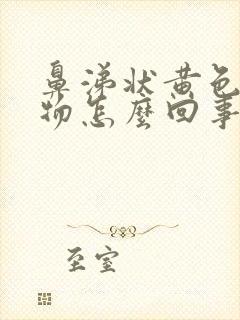 鼻涕状黄色
物怎麼回事
至室